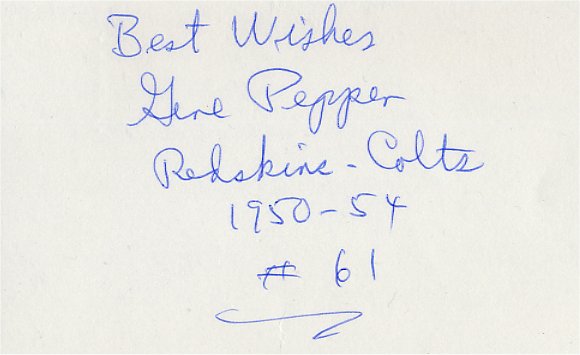 Best Wishes
Gene Pepper
Redskins - Colts
1950-54
# 61